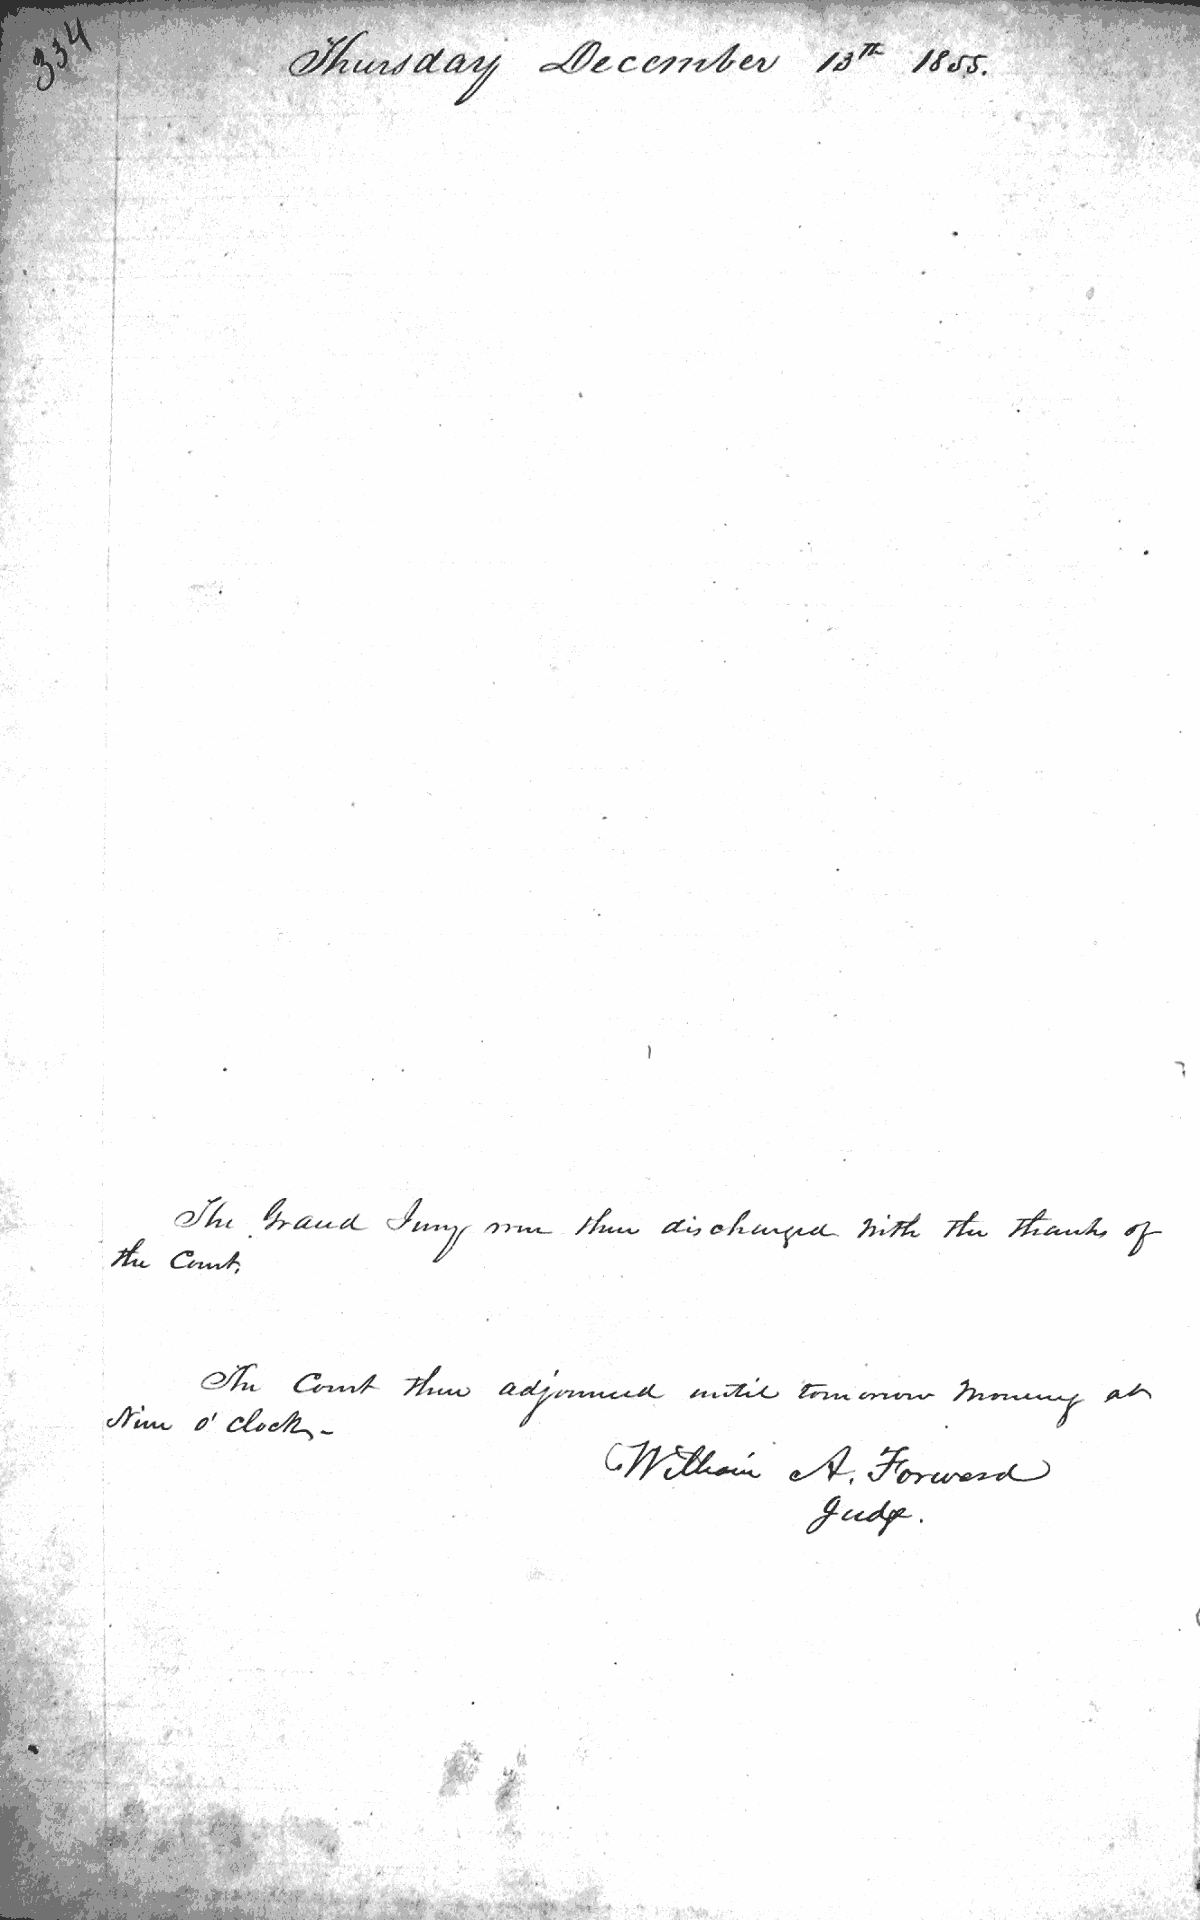 334
Thursday December 13th 1855.
The Grand Jury were then discharged with the thanks of
the Court.
The Court then adjourned until tomorrow morning at
Nine o'clock.-
William A. Forward
Judge.